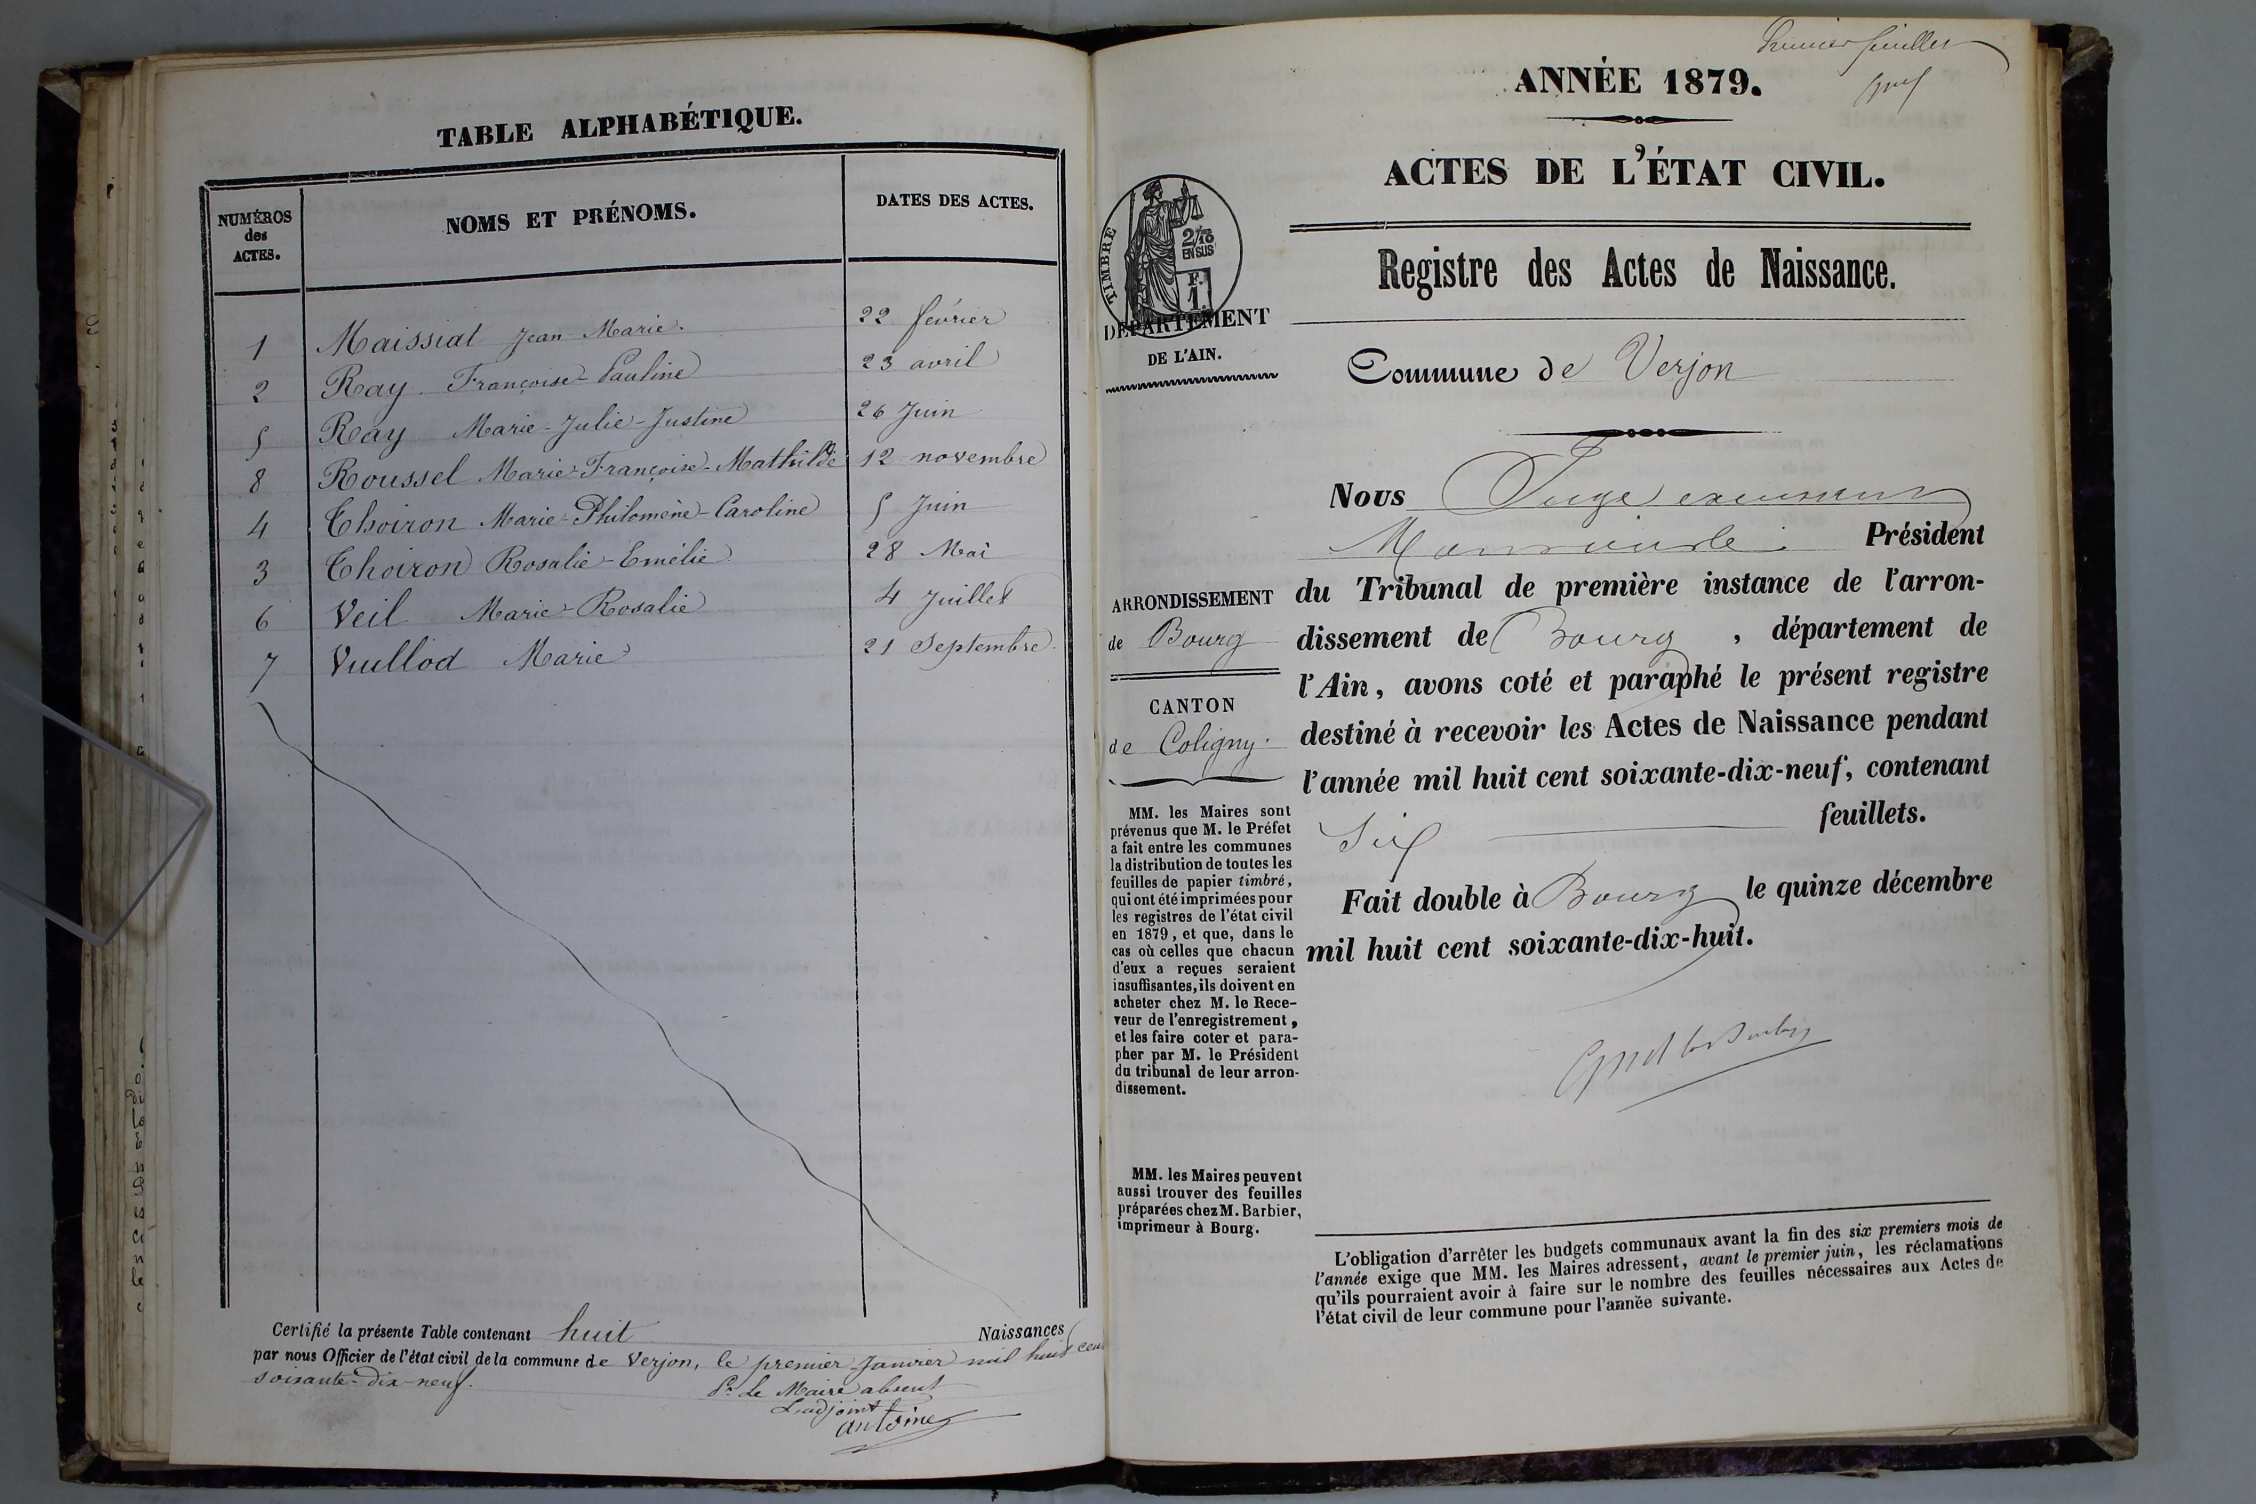 TABLE ALPHABÉTIQUE.
NUMÉROS
des
ACTES.
NOMS ET PRÉNOMS.
DATES DES ACTES.
1 Maissiat Jean Marie. 22 février
2 Ray Françoise-Pauline 23 avril
5 Ray Marie-Julie-Justine 26 Juin
8 Roussel Marie-Françoise-Mathilde 12 novembre
4 Thoiron Marie-Philomène-Caroline 5 Juin
3 Thoiron Rosalie-Emélie 28 Mai
6 Veil Marie-Rosalie 4 Juillet
7 Vuillod Marie 21 Septembre.
Certifié la présente Table contenant huit Naissances
par nous Officier de l'état civil de la commune de Verjon, le premier Janvier mil huit cent
soixante-dix-neuf.
Pr Le Maire absent
L'adjoint
antoine
Premier feuillet
ANNÉE 1879.
ACTES DE L'ÉTAT CIVIL.
Registre des Actes de Naissance.
TIMBRE
2/10
EN SUS
F.
1.
DÉPARTEMENT
DE L'AIN.
Commune de Verjon
Nous Juge
Président
du Tribunal de première instance de l'arron-
dissement de Bourg, département de
l'Ain, avons coté et paraphé le présent registre
destiné à recevoir les Actes de Naissance pendant
l'année mil huit cent soixante-dix-neuf, contenant
Six feuillets.
Fait double à Bourg le quinze décembre
mil huit cent soixante-dix-huit.
ARRONDISSEMENT
de Bourg
CANTON
de Coligny.
MM. les Maires sont
prévenus que M. le Préfet
a fait entre les communes
la distribution de toutes les
feuilles de papier timbré,
qui ont été imprimées pour
les registres de l'état civil
en 1879, et que, dans le
cas où celles que chacun
d'eux a reçues seraient
insuffisantes, ils doivent en
acheter chez M. le Rece-
veur de l'enregistrement,
et les faire coter et para-
pher par M. le Président
du tribunal de leur arron-
dissement.
MM. les Maires peuvent
aussi trouver des feuilles
préparées chez M. Barbier,
imprimeur à Bourg.
L'obligation d'arrêter les budgets communaux avant la fin des six premiers mois de
l'année exige que MM. les Maires adressent, avant le premier juin, les réclamations
qu'ils pourraient avoir à faire sur le nombre des feuilles nécessaires aux Actes de
l'état civil de leur commune pour l'année suivante.